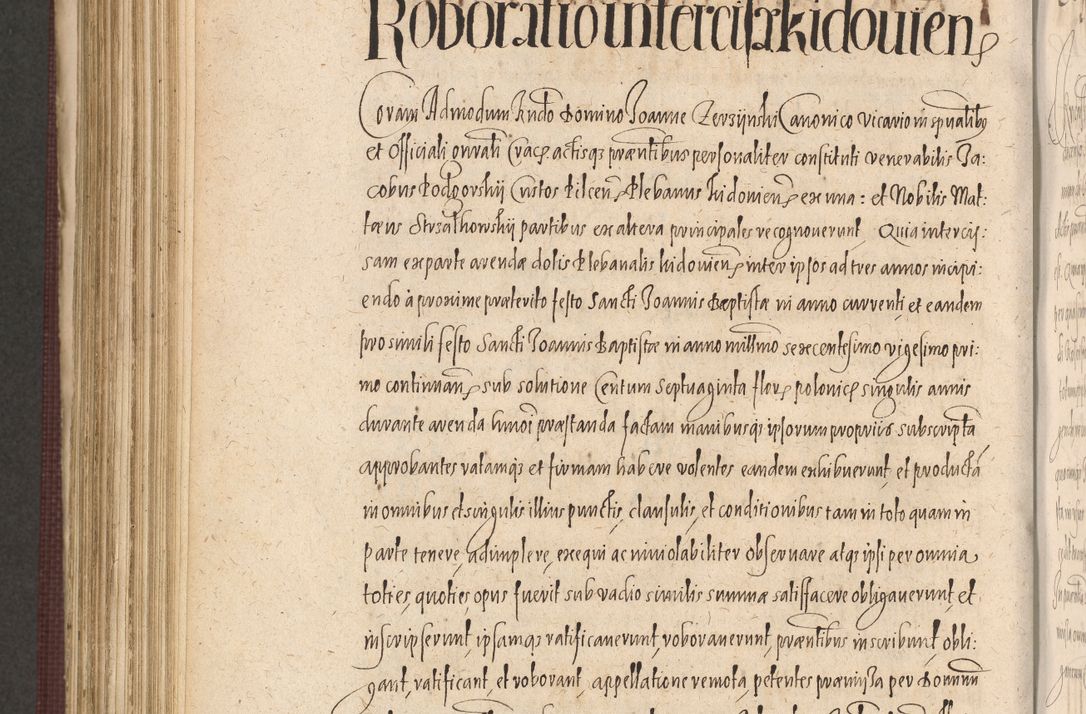 Roboratio intercisæ kidouien
Coram Admodum Rndo Domino Joanne Zerzijnski Canonico vicario in spualibq
et Officiali gnrali Crac actisqз præntibus personaliter constituti venerabilis Ja:
cobus Podgorskij Custos Pilcen Plebanus kidouien ex una: et Nobilis Mat:
tæus Strzalkowskij partibus ex altera principales recognouerunt Quia intercij:
sam ex parte arendæ dotis Plebanalis kidouien inter ipsos ad tres annos incipi:
endo à proxime præterito festo Sancti Joannis Baptistæ in anno currenti et eandem
pro simili festo Sancti Joannis Baptistæ in anno millmo sexcentesimo vigesimo pri:
mo continuan sub solutione Centum Septuaginta flor polonic singulis annis
durante arenda hmoi præstanda factam manibusqз ipsorum proprijs subscripta
approbantes ratamqз et firmam habere volentes eandem exhibuerunt, et producta
in omnibus et singulis illius punctis, clausulis, et conditionibus tam in toto quam in
parte tenere, adimplere, exequi ac inuiolabiliter obseruare atqз ipsi per omnia
toties, quoties opus fuerit sub vadio similis summæ satisfacere obligauerunt, et
inscripserunt, ipsamqз ratificauerunt, roborauerunt, præntibus inscribunt, obli:
gant, ratificant, et roborant, appellatione remota, petentes præmissa per Domnm